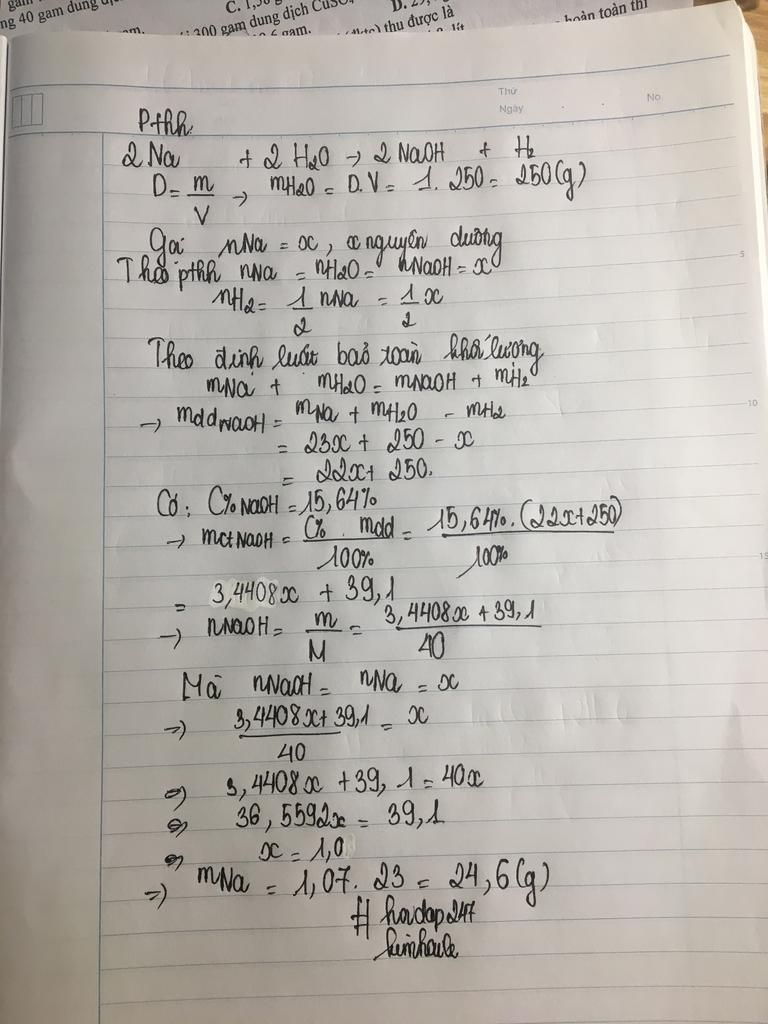 C. 1,50
D. 25,
ng 40 gam dung dịch
200 gam dung dịch CuSO₄
hoàn toàn thì
gam.
(đktc) thu được là
Thứ
Ngày . .
No.
Pthh
2 Na + 2 H₂O → 2 NaOH + H₂
D = m/V → mH₂O = D.V = 1. 250 = 250(g)
Gọi nNa = x, x nguyên dương
Theo pthh nNa = nH₂O = nNaOH = x
nH₂ = 1/2 nNa = 1/2 x
Theo định luật bảo toàn khối lượng
mNa + mH₂O = mNaOH + mH₂
→ mdd NaOH = mNa + mH₂O - mH₂
= 23x + 250 - x
= 22x + 250.
Có: C% NaOH = 15,64%
→ mct NaOH = C% . mdd / 100% = 15,64%. (22x+250) / 100%
= 3,4408x + 39,1
→ nNaOH = m/M = 3,4408x + 39,1 / 40
Mà nNaOH = nNa = x
=> 3,4408x + 39,1 / 40 = x
=> 3,4408x + 39,1 = 40x
=> 36,5592x = 39,1
=> x = 1,0
=> mNa = 1,07. 23 = 24,6(g)
# hoidap247
5
10
15